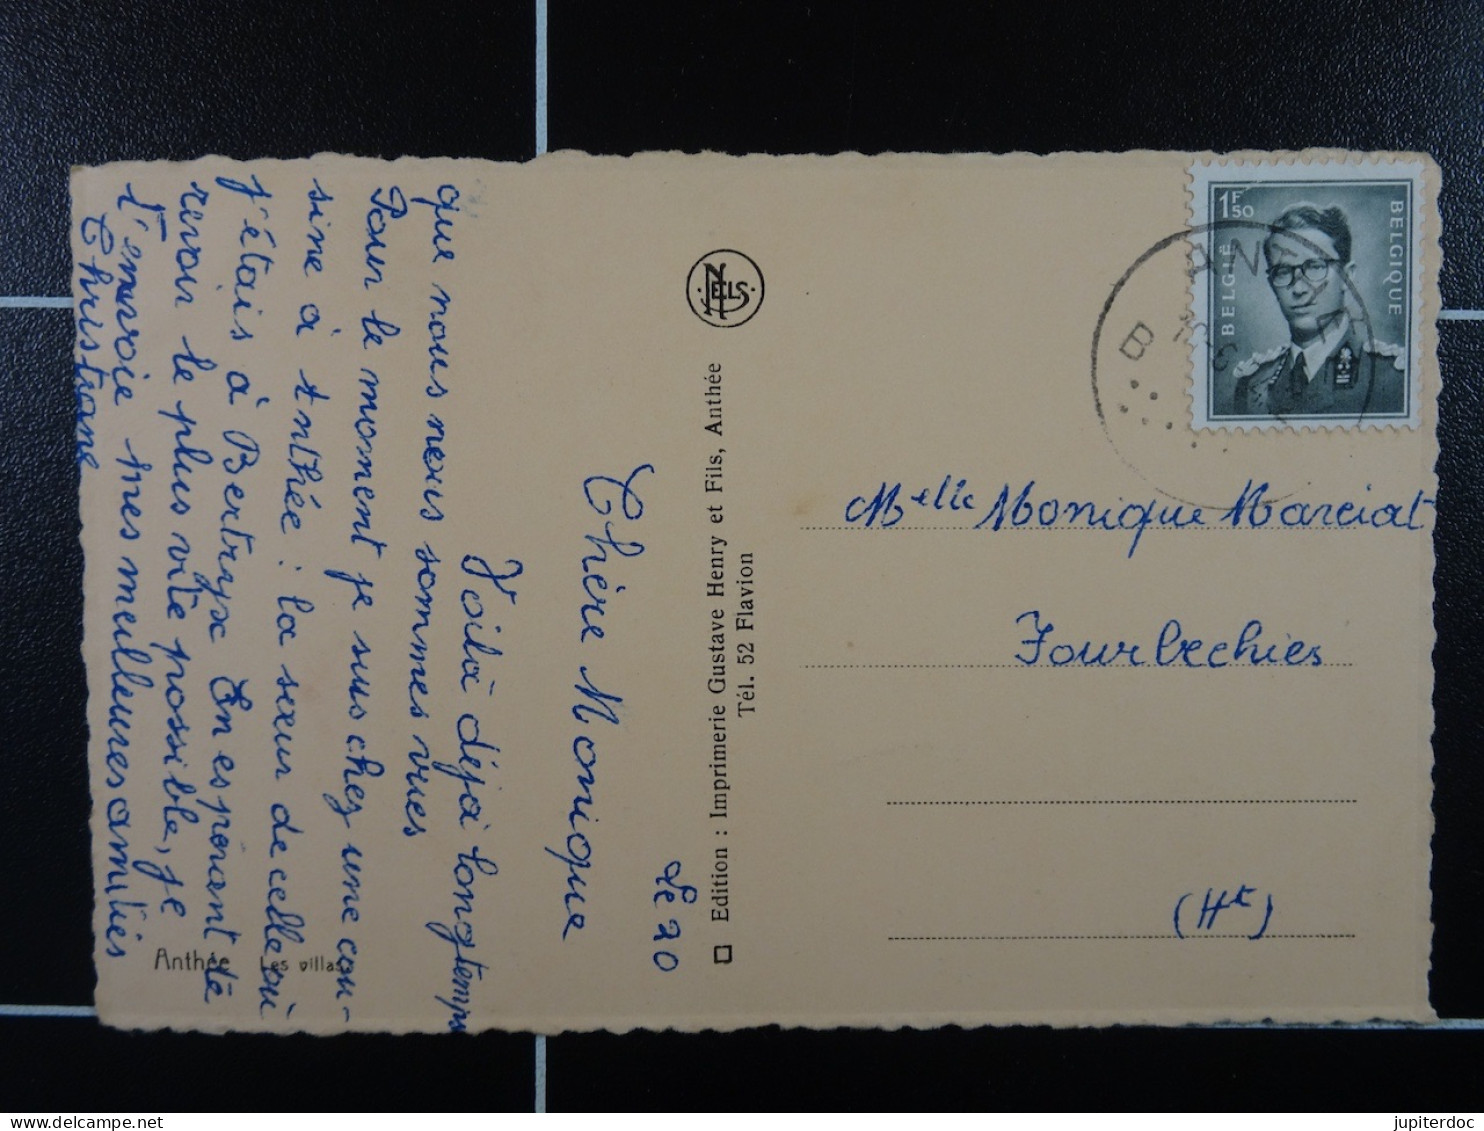 Le 20
Chère Monique
Voilà déjà longtemps
que nous nous sommes vues
Pour le moment je suis chez une cou-
sine à Anthée : la sœur de celle où
j'étais à Bertrix En espérant te
revoir le plus vite possible, je
t'envoie mes meilleures amitiés
Christiane
Anthée Les villas
NELS
Edition : Imprimerie Gustave Henry et Fils, Anthée
Tél. 52 Flavion
1F50
BELGIË
BELGIQUE
Melle Monique Marciat
Fourbechies
(Ht)
jupiterdoc